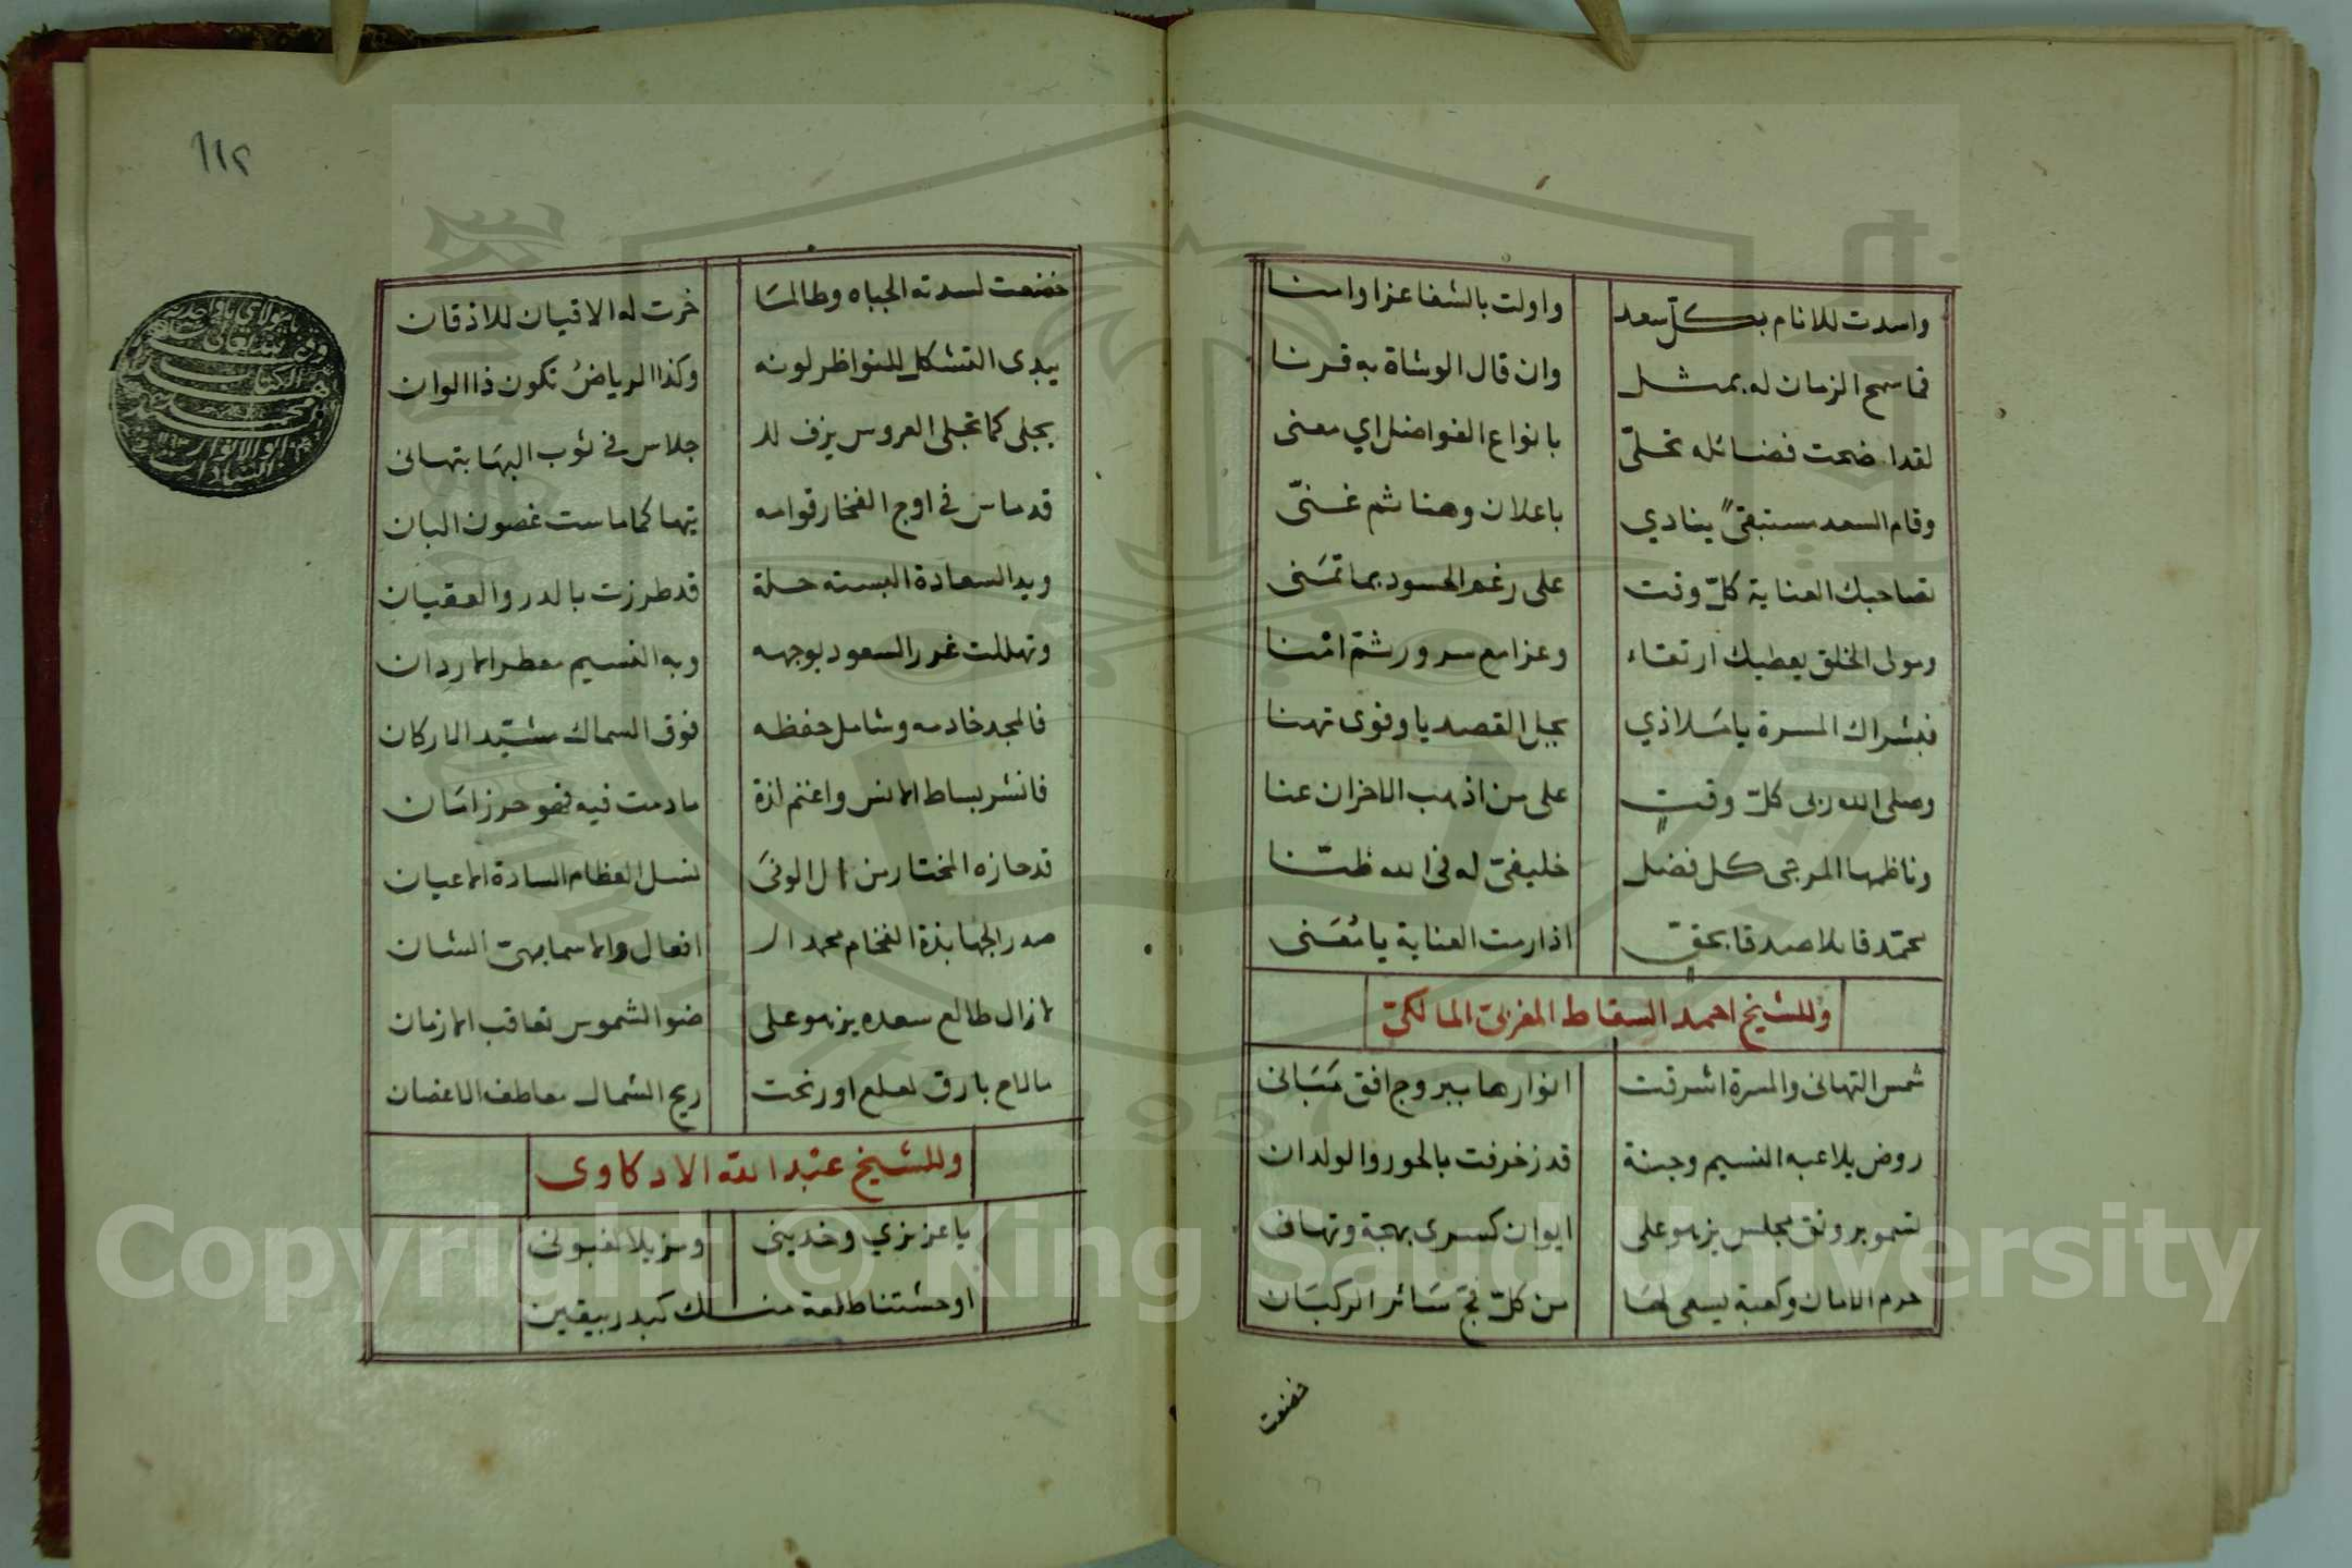 واسدت للانام بكل سعد واولت بالشفا عزا وامنا
فما سمح الزمان له بمثل وان قال الوشاة به قرنا
لقد اضحت فضائله تحلّى بانواع الفواضل اي معنى
وقام السعد ينادي باعلان وهنا ثم غنّى
تصاحبك العناية كلّ وقت على رغم الحسود بما تمنى
ومولى الخلق يعطيك ارتقاء وعزا مع سرور ثمّ امنا
فبشراك المسرة يا ملاذي بجل القصد يا وفوى تهنا
وصلى الله ربى كلّ وقتٍ على من اذهب الاحزان عنا
وناظمها المرجى كل فضل خليفىّ له فى الله ظنّا
محمّد قائلا صدقا بحقٍّ اذا رمت العناية يا مُعَنى
وللشيخ احمد السقاط المغربىّ المالكىّ
شمس التهانى والمسرة اشرقت انوارها ببروج افق مَبَانى
روض يلاعبه النسيم وجنة قد زخرفت بالحور والولدان
تسمو برونق مجلس يزهو على ايوان كسرى بهجة وتهانى
حرم الامان وكعبة يسعى لها من كلّ فج سَائر الركبَان
خضعت
١١٢
خضعت لسدته الجباه وطالما خرت له الاقيان للاذقان
يبدى التشكل للنواظر لونه وكذا الرياضُ تكون ذا الوان
يجلى كما تجلى العروس يزف لل جلاس فى ثوب البهَا بتهانى
قد ماس فى اوج الفخار قوامه تيها كما ماست غصون البان
ويد السعادة البسته حلة قد طرزت بالدر والعقيان
وتهللت غرر السعود بوجهه وبه النسيم معطر الاردان
فالمجد خادمه وشامل حفظه فوق السماك مشيّد الاركان
فانشر بساط الانس واغنم لذة ما دمت فيه فهو حرز امَان
قد حازه المختار من ال الوفى نسل العظام السادة الاعيان
صدر الجهابذة الفخام محمد ال افعال والاسما بهىّ الشان
لا زال طالع سعده يزهو على ضوا الشموس تعاقب الازمان
ما لاح بارق لعلع او رنحت ريح الشمال معاطف الاغصان
وللشيخ عبد الله الادكاوى
يا عزيزي وخدينى ومزيلا لغبونى
اوحشتنا طلعة منك كبدر بيقين